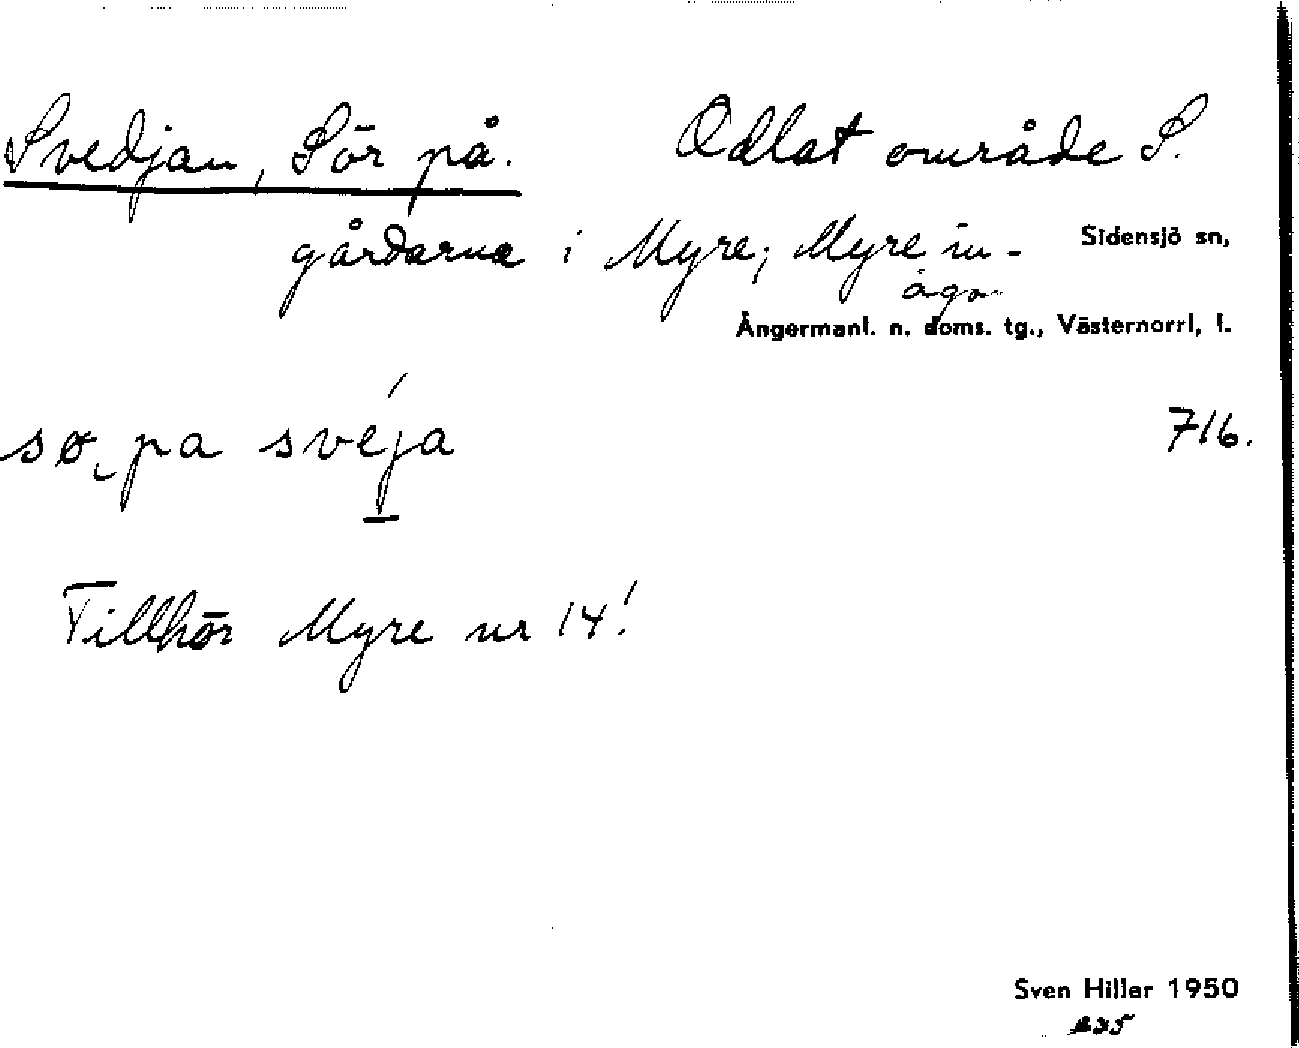 Svedjan, Sör på. Odlat område S.
gårdarna i Myre; Myre in-
ägor
Sidensjö sn,
Ångermanl. n. doms. tg., Västernorrl. l.
sø, pa svéja
716.
Tillhör Myre nr 14!
Sven Hiller 1950